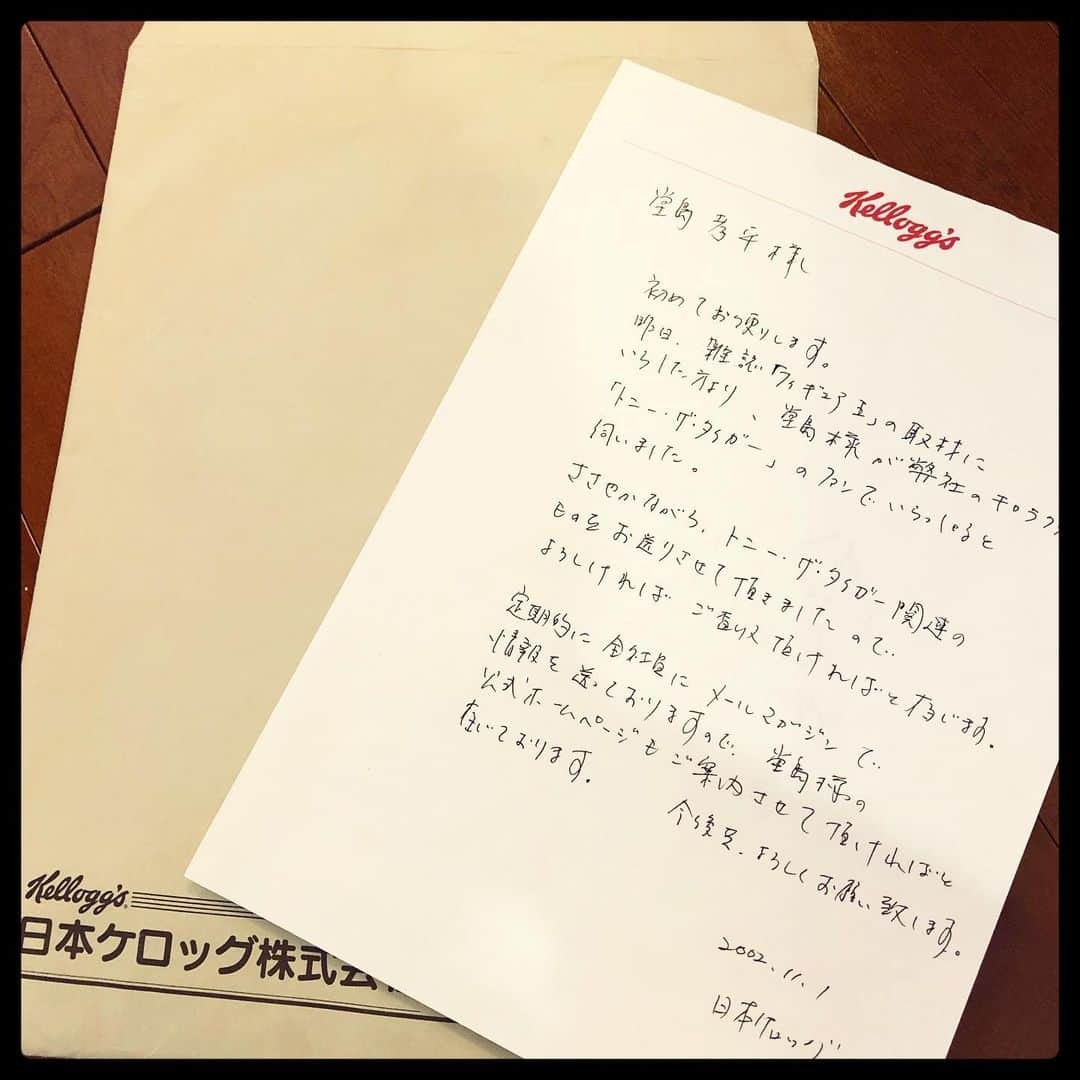 Kellogg's
堂島孝平様
初めてお便りします。
昨日、雑誌「フィギュア王」の取材に
いらした方より、堂島様が弊社のキャラク
「トニー・ザ・タイガー」のファンでいらっしゃると
伺いました。
ささやかながら、トニー・ザ・タイガー関連の
ものをお送りさせて頂きましたので、
よろしければご査収頂ければと存じます。
定期的に全社員にメールマガジンで、
情報を送っておりますので、堂島様の
公式ホームページもご案内させて頂ければと
存じております。
今後共、よろしくお願い致します。
2002.11.1
日本ケロッグ
Kellogg's
日本ケロッグ株式会